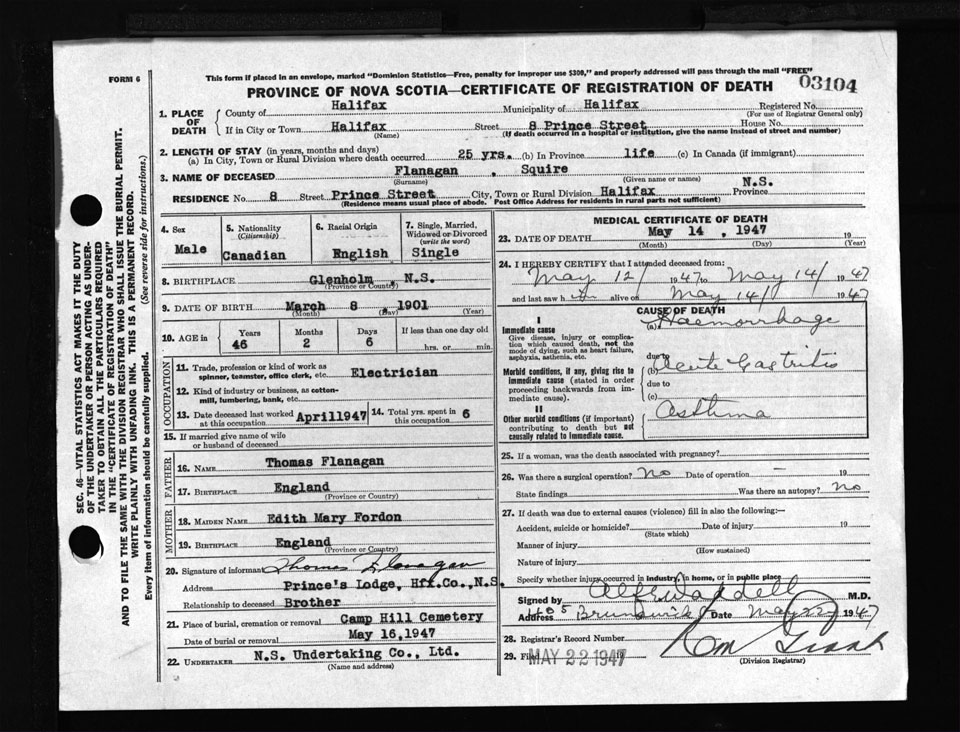 FORM 6
This form if placed in an envelope, marked "Dominion Statistics—Free, penalty for improper use $300," and properly addressed will pass through the mail "FREE"
03104
PROVINCE OF NOVA SCOTIA—CERTIFICATE OF REGISTRATION OF DEATH
1. PLACE OF DEATH
County of Halifax Municipality of Halifax Registered No.
(For use of Registrar General only)
If in City or Town Halifax Street 8 Prince Street House No.
(Name) (If death occurred in a hospital or institution, give the name instead of street and number)
2. LENGTH OF STAY (in years, months and days)
(a) In City, Town or Rural Division where death occurred 25 yrs. (b) In Province life (c) In Canada (if immigrant)
3. NAME OF DECEASED Flanagan , Squire
(Surname) (Given name or names)
RESIDENCE No. 8 Street Prince Street City, Town or Rural Division Halifax Province N.S.
(Residence means usual place of abode. Post Office Address for residents in rural parts not sufficient)
4. Sex
Male
5. Nationality
(Citizenship)
Canadian
6. Racial Origin
English
7. Single, Married, Widowed or Divorced
(write the word)
Single
8. BIRTHPLACE Glenholm, N.S.
(Province or Country)
9. DATE OF BIRTH March 8 1901
(Month) (Day) (Year)
10. AGE in Years Months Days If less than one day old
46 2 6 hrs. or min
OCCUPATION
11. Trade, profession or kind of work as spinner, teamster, office clerk, etc. Electrician
12. Kind of industry or business, as cotton-mill, lumbering, bank, etc.
13. Date deceased last worked at this occupation April1947
14. Total yrs. spent in this occupation 6
15. If married give name of wife or husband of deceased
FATHER
16. NAME Thomas Flanagan
17. BIRTHPLACE England
(Province or Country)
MOTHER
18. MAIDEN NAME Edith Mary Fordon
19. BIRTHPLACE England
(Province or Country)
20. Signature of informant Thomas Flanagan
Address Prince's Lodge, Hfx.Co., N.S.
Relationship to deceased Brother
21. Place of burial, cremation or removal Camp Hill Cemetery
Date of burial or removal May 16,1947
22. UNDERTAKER N.S. Undertaking Co., Ltd.
(Name and address)
MEDICAL CERTIFICATE OF DEATH
23. DATE OF DEATH May 14 , 1947 19
(Month) (Day) (Year)
24. I HEREBY CERTIFY that I attended deceased from:
May 12/ 1947 to May 14/ 1947
and last saw him alive on May 14/ 1947
CAUSE OF DEATH
I
Immediate cause
Give disease, injury or complication which caused death, not the mode of dying, such as heart failure, asphyxia, asthenia, etc.
(a) Haemorrhage
due to
Morbid conditions, if any, giving rise to immediate cause (stated in order proceeding backwards from immediate cause).
(b) Acute Gastritis
due to
(c)
II
Other morbid conditions (if important) contributing to death but not causally related to immediate cause.
Asthma
25. If a woman, was the death associated with pregnancy?
26. Was there a surgical operation? No Date of operation — 19
State findings Was there an autopsy? No
27. If death was due to external causes (violence) fill in also the following:—
Accident, suicide or homicide? Date of injury 19
(State which)
Manner of injury
(How sustained)
Nature of injury
Specify whether injury occurred in industry, in home, or in public place
Signed by M.D.
Address Brunswick Date May 22 1947
28. Registrar's Record Number
29. Filed MAY 22 1947 19
(Division Registrar)
SEC. 46—VITAL STATISTICS ACT MAKES IT THE DUTY
OF THE UNDERTAKER OR PERSON ACTING AS UNDER-
TAKER TO OBTAIN ALL THE PARTICULARS REQUIRED
IN THE "CERTIFICATE OF REGISTRATION OF DEATH"
AND TO FILE THE SAME WITH THE DIVISION REGISTRAR WHO SHALL ISSUE THE BURIAL PERMIT.
WRITE PLAINLY WITH UNFADING INK. THIS IS A PERMANENT RECORD.
Every item of information should be carefully supplied. (See reverse side for instructions.)